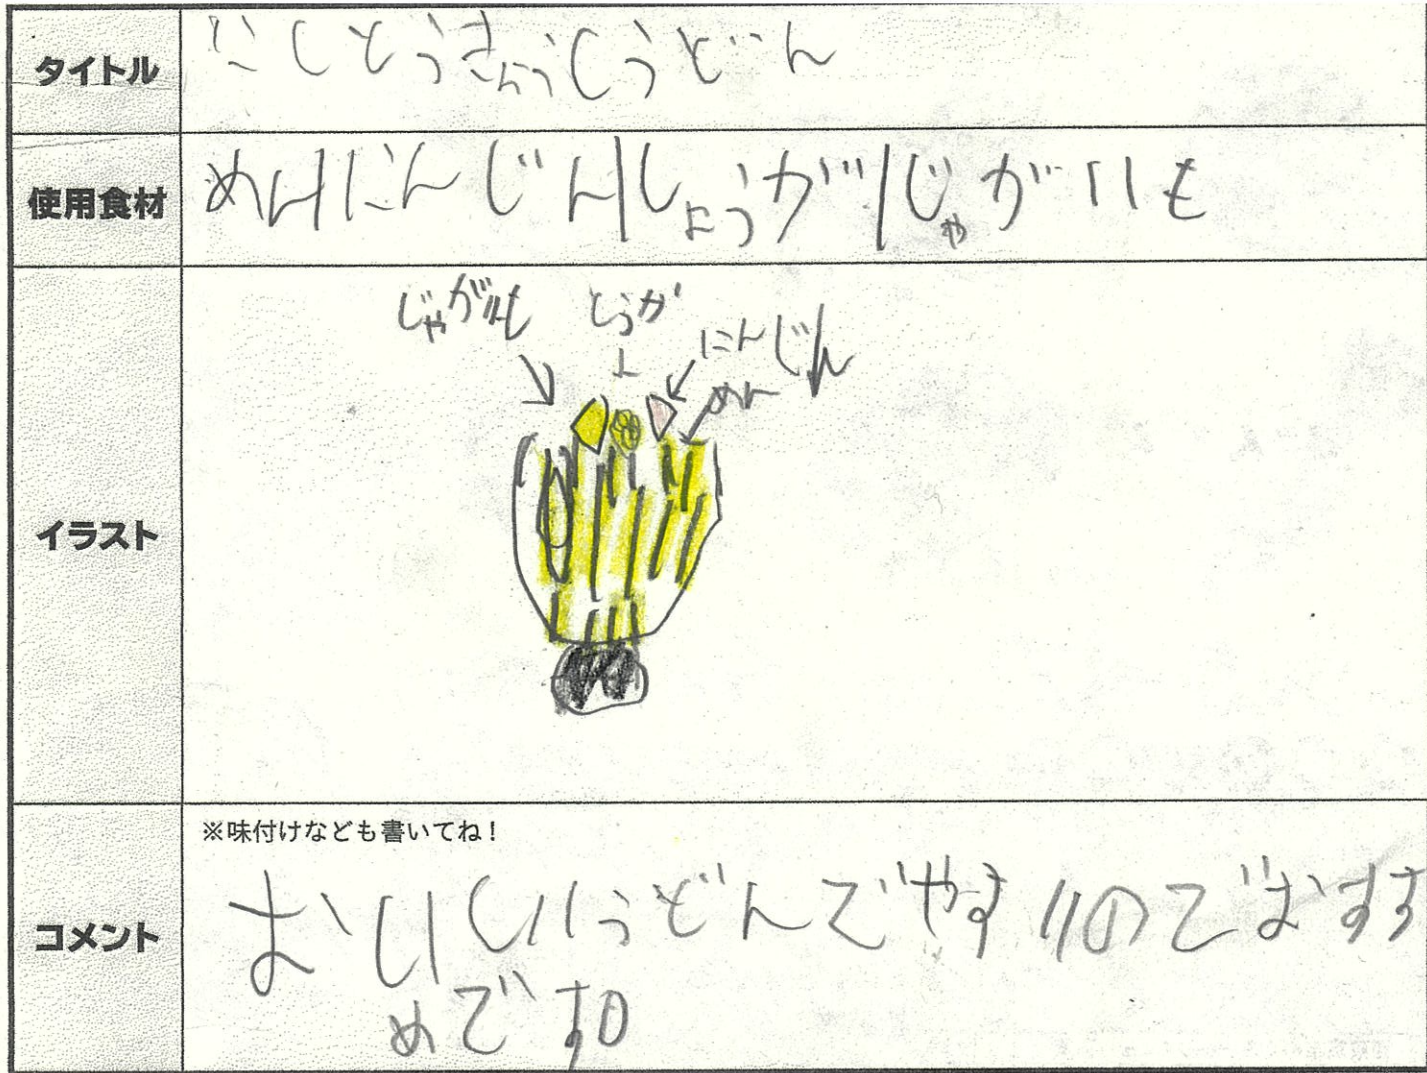 タイトル
にしとうきょうしうどん
使用食材
めん|にんじん|しょうが|じゃがいも
イラスト
じゃがいも
とうが
にんじん
めん
※味付けなども書いてね!
コメント
おいしいうどんでやすいのでおすす
めです。